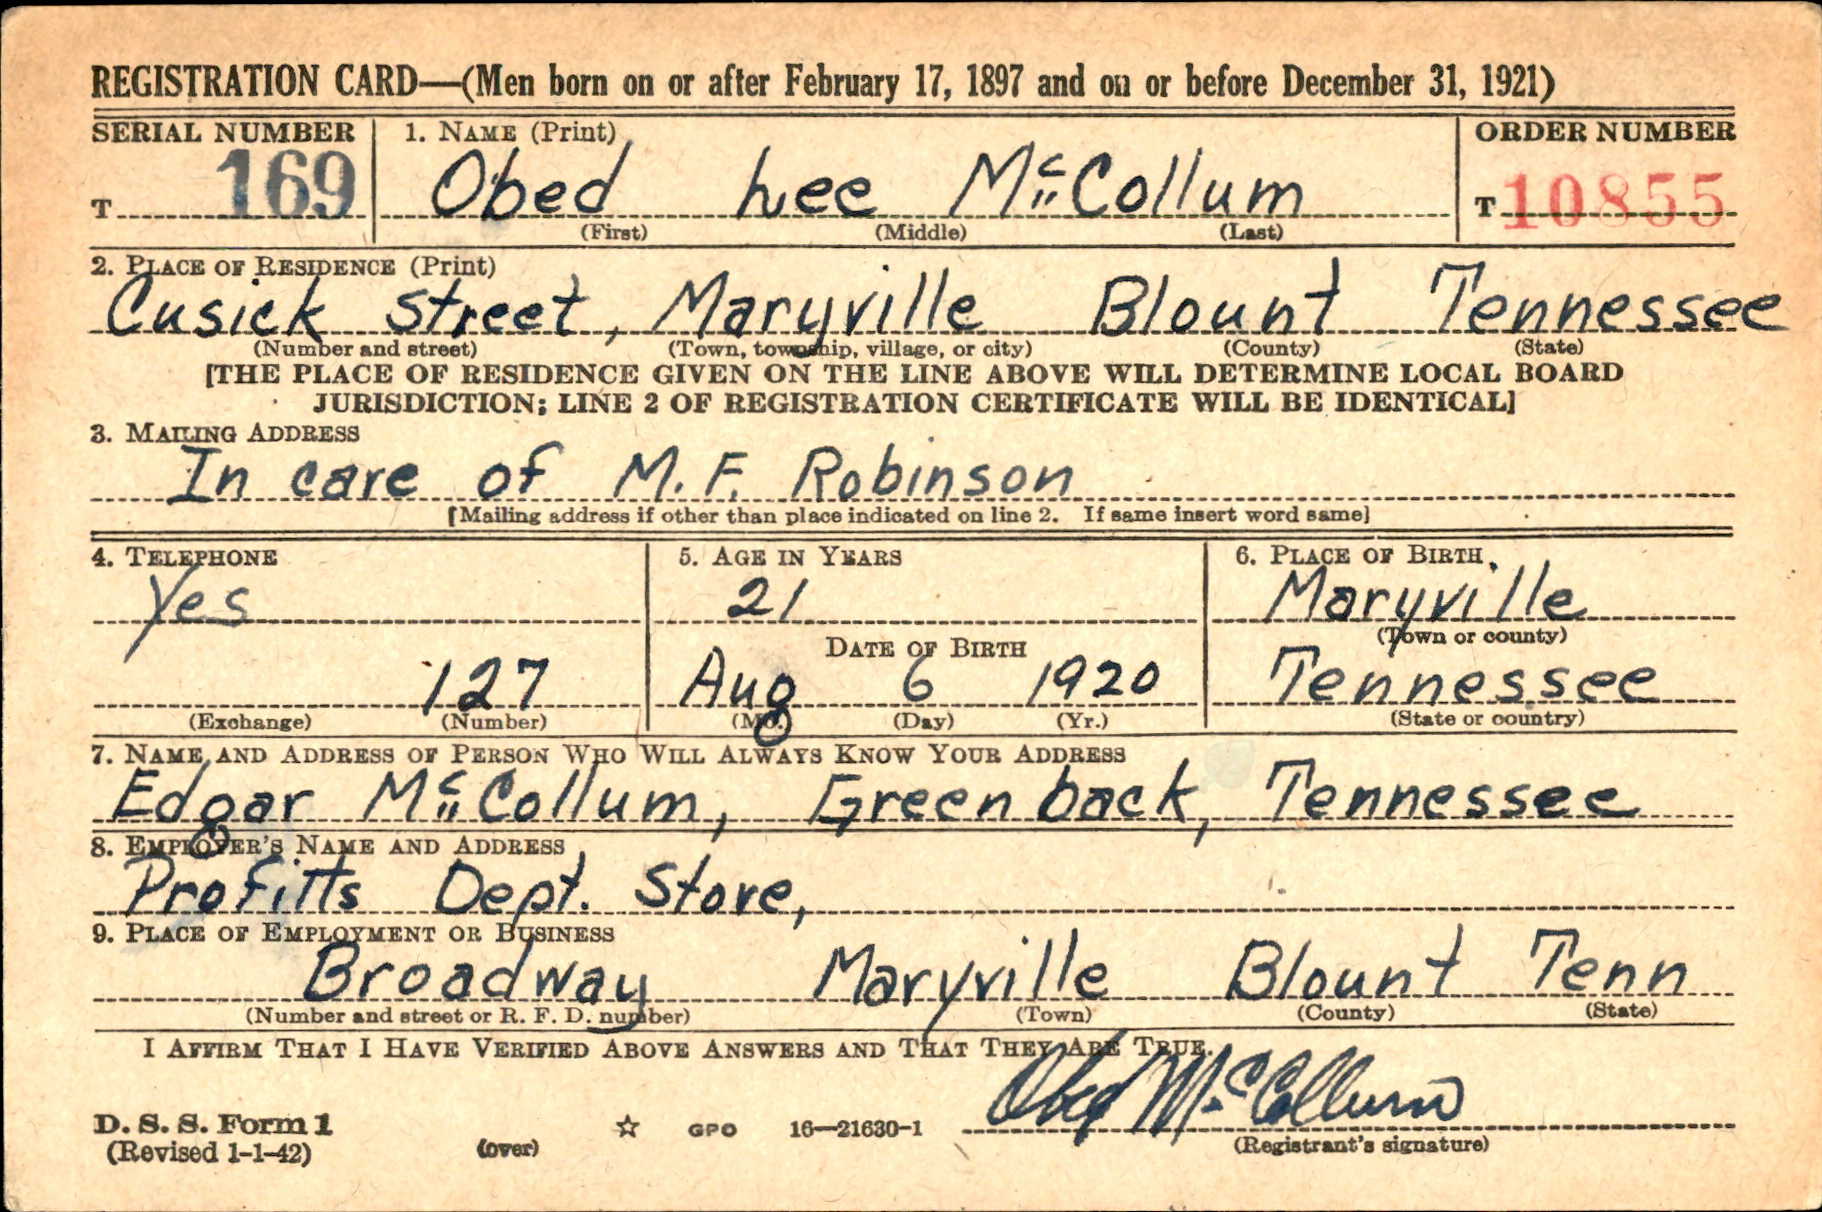 REGISTRATION CARD—(Men born on or after February 17, 1897 and on or before December 31, 1921)
SERIAL NUMBER 1. NAME (Print) ORDER NUMBER
T 169 Obed Lee McCollum T 10855
(First) (Middle) (Last)
2. PLACE OF RESIDENCE (Print)
Cusick Street, Maryville Blount Tennessee
(Number and street) (Town, township, village, or city) (County) (State)
[THE PLACE OF RESIDENCE GIVEN ON THE LINE ABOVE WILL DETERMINE LOCAL BOARD
JURISDICTION; LINE 2 OF REGISTRATION CERTIFICATE WILL BE IDENTICAL]
3. MAILING ADDRESS
In care of M. F. Robinson
[Mailing address if other than place indicated on line 2. If same insert word same]
4. TELEPHONE 5. AGE IN YEARS 6. PLACE OF BIRTH
Yes 21 Maryville
DATE OF BIRTH (Town or county)
127 Aug 6 1920 Tennessee
(Exchange) (Number) (Mo.) (Day) (Yr.) (State or country)
7. NAME AND ADDRESS OF PERSON WHO WILL ALWAYS KNOW YOUR ADDRESS
Edgar McCollum, Greenback, Tennessee
8. EMPLOYER'S NAME AND ADDRESS
Profitts Dept. Store,
9. PLACE OF EMPLOYMENT OR BUSINESS
Broadway Maryville Blount Tenn
(Number and street or R. F. D. number) (Town) (County) (State)
I AFFIRM THAT I HAVE VERIFIED ABOVE ANSWERS AND THAT THEY ARE TRUE.
Obed McCollum
D. S. S. Form 1
(Revised 1-1-42) (over) ☆ GPO 16—21630-1 (Registrant's signature)